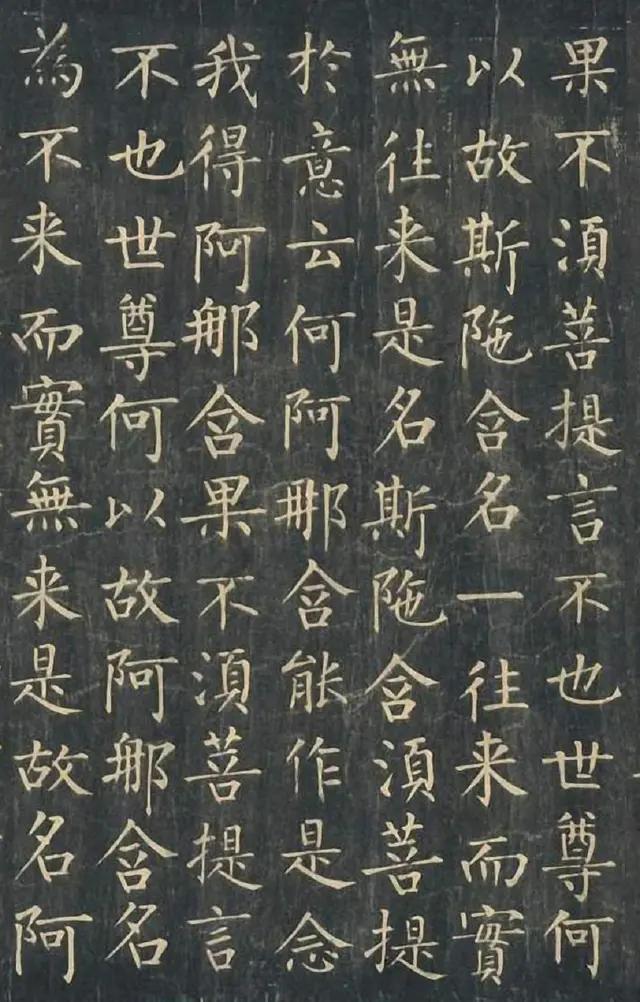 果不湏菩提言不也世尊何
以故斯陁含名一往来而實
無往来是名斯陁含湏菩提
於意云何阿那含能作是念
我得阿那含果不湏菩提言
不也世尊何以故阿那含名
為不来而實無来是故名阿